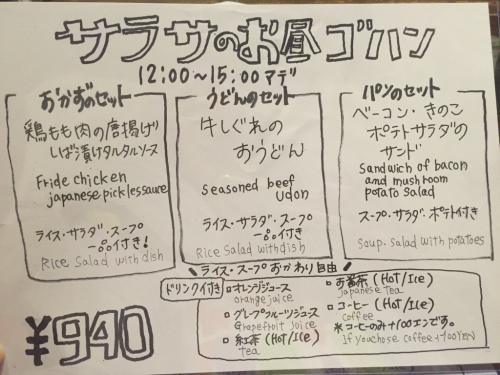 サラサのお昼ゴハン
12:00〜15:00マデ
おかずのセット
鶏もも肉の唐揚げ
しば漬けタルタルソース
Fride chicken
japanese picklessauce
ライス・サラダ・スープ
一品付き!
Rice Salad with dish
うどんのセット
牛しぐれの
おうどん
seasoned beef
udon
ライス・サラダ・スープ
一品付き
Rice Salad withdish
パンのセット
ベーコン・きのこ
ポテトサラダの
サンド
sandwich of bacon
and mushroom
potato salad
スープ・サラダ・ポテト付き
Soup・salad with potatoes
ライス・スープおかわり自由
ドリンク付き
オレンジジュース
orange juice
グレープフルーツジュース
Grapefruit Juice
紅茶 (Hot/Ice)
tea
お番茶 (Hot/Ice)
japanese tea
コーヒー (Hot/Ice)
coffee
※コーヒーのみ+100エンです。
If you chose coffee+100YEN
¥940